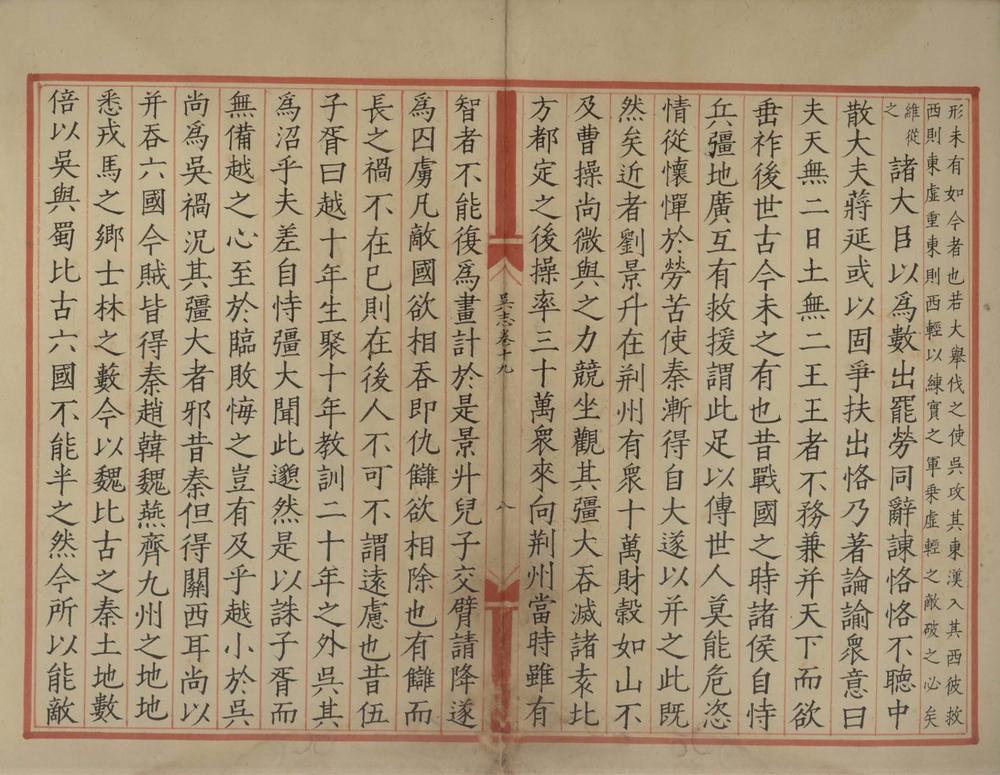 形未有如今者也若大舉伐之使吳攻其東漢入其西彼救
西則東虛重東則西輕以練實之軍乘虛輕之敵破之必矣
維從
之
諸大臣以為數出罷勞同辭諫恪恪不聽中
散大夫蔣延或以固爭扶出恪乃著論諭眾意曰
夫天無二日土無二王王者不務兼并天下而欲
垂祚後世古今未之有也昔戰國之時諸侯自恃
兵彊地廣互有救援謂此足以傳世人莫能危恣
情從懷憚於勞苦使秦漸得自大遂以并之此既
然矣近者劉景升在荆州有眾十萬財穀如山不
及曹操尚微與之力競坐觀其彊大吞滅諸袁北
方都定之後操率三十萬眾來向荆州當時雖有
吳志卷十九
八
智者不能復為畫計於是景升兒子交臂請降遂
為囚虜凡敵國欲相吞即仇讎欲相除也有讎而
長之禍不在已則在後人不可不謂遠慮也昔伍
子胥曰越十年生聚十年教訓二十年之外吳其
為沼乎夫差自恃彊大聞此邈然是以誅子胥而
無備越之心至於臨敗悔之豈有及乎越小於吳
尚為吳禍況其彊大者邪昔秦但得關西耳尚以
并吞六國今賊皆得秦趙韓魏燕齊九州之地地
悉戎馬之鄉士林之藪今以魏比古之秦土地數
倍以吳與蜀比古六國不能半之然今所以能敵